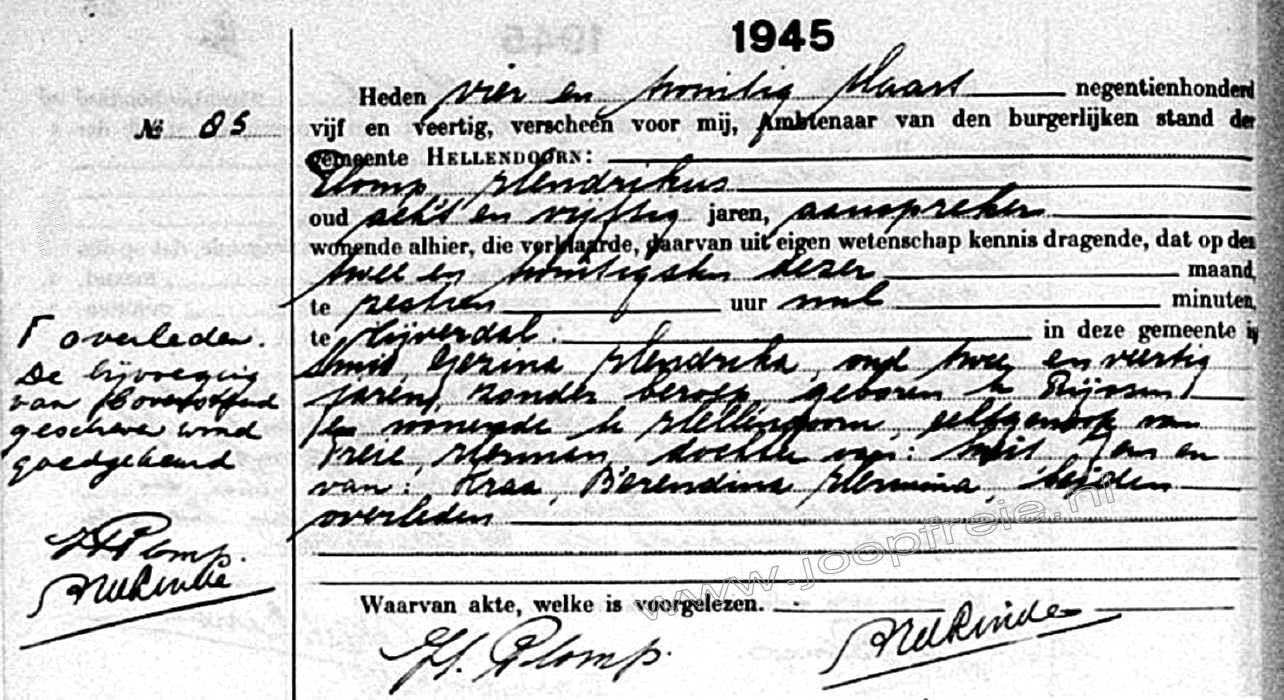 1945
Heden vier en twintig Maart negentienhonderd
№ 85
vijf en veertig, verscheen voor mij, Ambtenaar van den burgerlijken stand der
gemeente HELLENDOORN:
Plomp, Hendrikus
oud acht en vijftig jaren, aanspreker
wonende alhier, die verklaarde, daarvan uit eigen wetenschap kennis dragende, dat op den
twee en twintigsten dezer maand
te zestien uur nul minuten
te Nijverdal in deze gemeente is
Smit Gezina Hendrika, oud twee en veertig
jaren, zonder beroep, geboren te Rijssen
en wonende te Hellendoorn, echtgenoote van
Freie, Herman, dochter van: Smit, Jan en
van: Kraa, Berendina Hermina, beiden
overleden
Γ overleden.
De bijvoeging
van bovenstaand
geschreven word
goedgekeurd
H Plomp.
Waarvan akte, welke is voorgelezen.
H. Plomp.
www.joopfreie.nl